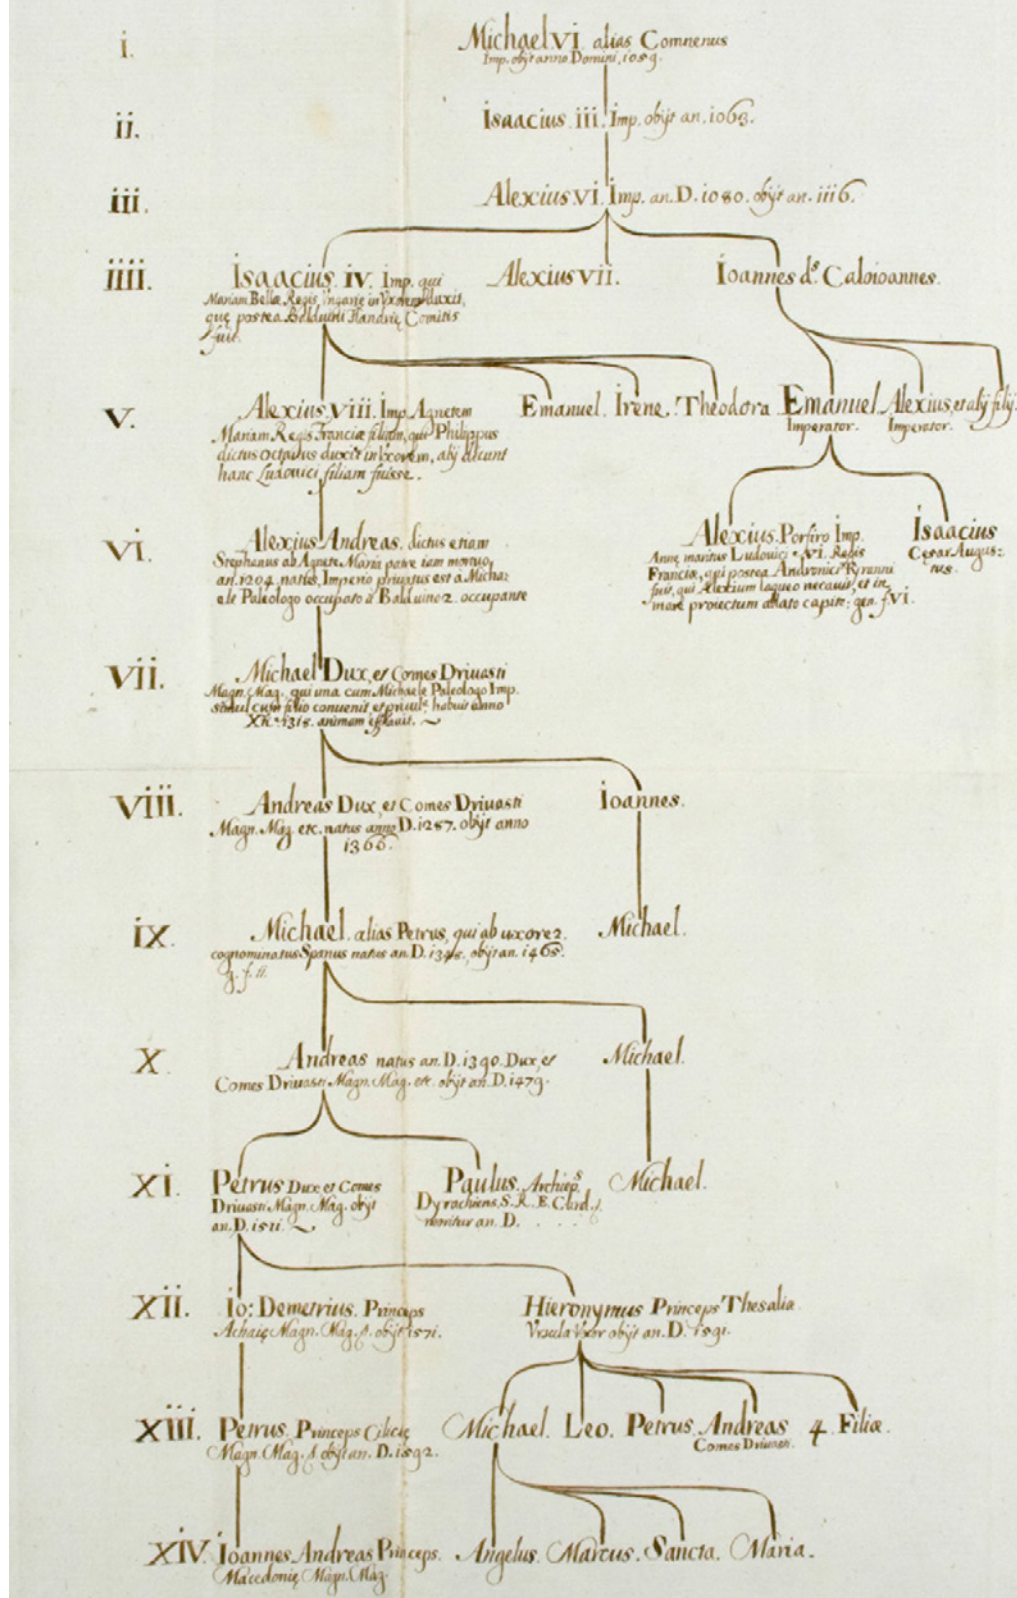 i.
Michael VI alias Comnenus
Imp. obijt anno Domini, 1059.
ii.
Isaacius iii. Imp. obijt an. 1063.
iii.
Alexius VI. Imp. an. D. 1080. obijt an. 1116.
iiii.
Isaacius. iv. Imp. qui
Mariam Bellæ Regis Ungarie in Vxorem duxit,
quę postea Balduini Flandrię Comitis
fuit.
Alexius VII.
Ioannes ds. Caloioannes.
V.
Alexius VIII. Imp. Agnetem
Mariam Regis Franciæ filiam, qui Philippus
dictus octauus duxit in Vxorem, alij dicunt
hanc Ludouici filiam fuisse.
Emanuel. Irene. Theodora
Emanuel
Imperator.
Alexius, et alij filij.
Imperator.
VI.
Alexius Andreas. dictus etiam
Stephanus ab Agnete Maria patre iam mortuo,
an. 1204. natus, Imperio priuatus est à Micha:
ele Paleologo occupato à Balduino 2. occupante
Alexius Porfiro Imp.
Annę maritus Ludouici VI. Regis
Francię, qui postea Andronici Tyranni
fuit, qui Alexium laqueo necauit, et in
mare proiectum ablato capite: gen. f. VI.
Isaacius
Cęsar Augus:
tus.
VII.
Michael Dux, et Comes Driuasti
Magn. Mag. qui una cum Michaele Paleologo Imp.
simul cum filio conuenit, et habuit anno
1318. animam efflauit.
VIII.
Andreas Dux, et Comes Driuasti
Magn. Mag. etc. natus anno D. 1287. obijt anno
1366.
Ioannes.
IX.
Michael. alias Petrus, qui ab uxore 2.
cognominatus Spanus natus an. D. obijt an. 1465.
g. f. ii.
Michael.
X.
Andreas natus an. D. 1390. Dux, et
Comes Driuasti Magn. Mag. etc. obijt an. D. 1479.
Michael.
XI.
Petrus Dux et Comes
Driuasti Magn. Mag. obijt
an. D. 1511.
Paulus. Archieps
Dyrachiens. S. R. E. Card.
moritur an. D. . . . .
Michael.
XII.
Io: Demetrius. Princeps
Achaię Magn. Mag. obijt 1571.
Hieronymus Princeps Thesaliæ
Vrsula Vxor obijt an. D. 1591.
XIII.
Petrus. Princeps Cilicię
Magn. Mag. obijt an. D. 1592.
Michael. Leo. Petrus. Andreas 4 Filiæ.
Comes Driuasti.
XIV.
Ioannes Andreas Princeps.
Macedonię Magn. Mag.
Angelus. Marcus. Sancta. Maria.